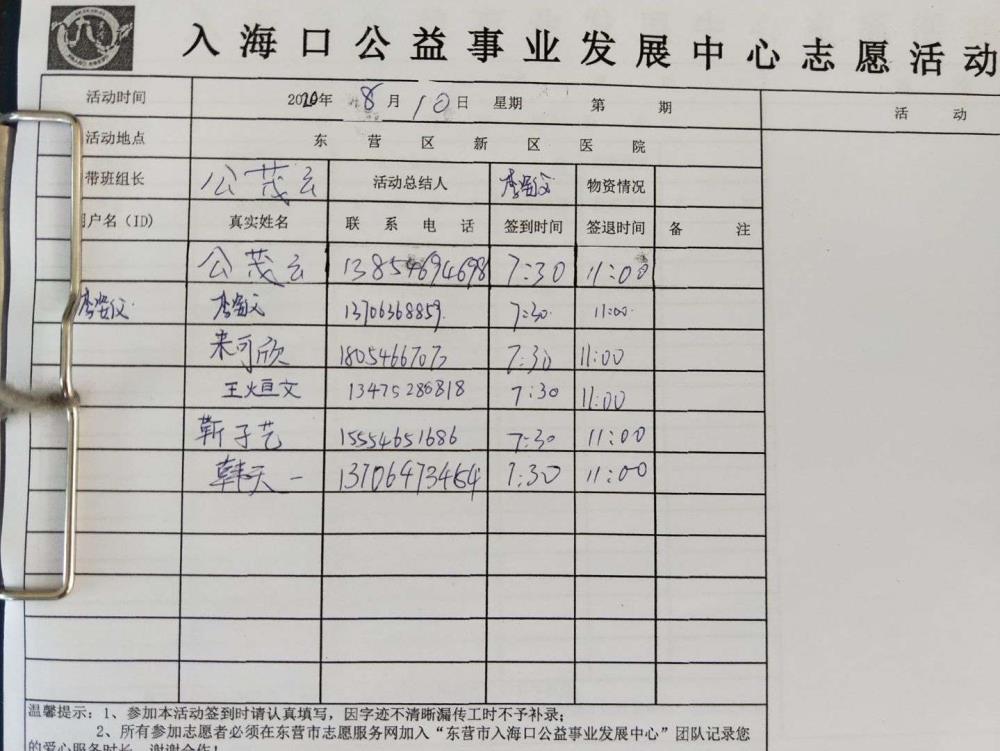 入海口公益事业发展中心志愿活动
活动时间 2020年 8月 10日 星期 第 期 活 动
活动地点 东 营 区 新 区 医 院
带班组长 公茂云 活动总结人 物资情况
户名(ID) 真实姓名 联 系 电 话 签到时间 签退时间 备 注
公茂云 13854694698 7:30 11:00
13706368859 7:30 11:00
来可欣 7:30 11:00
王烜文 13475286818 7:30 11:00
靳子艺 15554651686 7:30 11:00
韩天一 13706473454 7:30 11:00
温馨提示:1、参加本活动签到时请认真填写,因字迹不清晰漏传工时不予补录;
2、所有参加志愿者必须在东营市志愿服务网加入“东营市入海口公益事业发展中心”团队记录您
的爱心服务时长,谢谢合作!